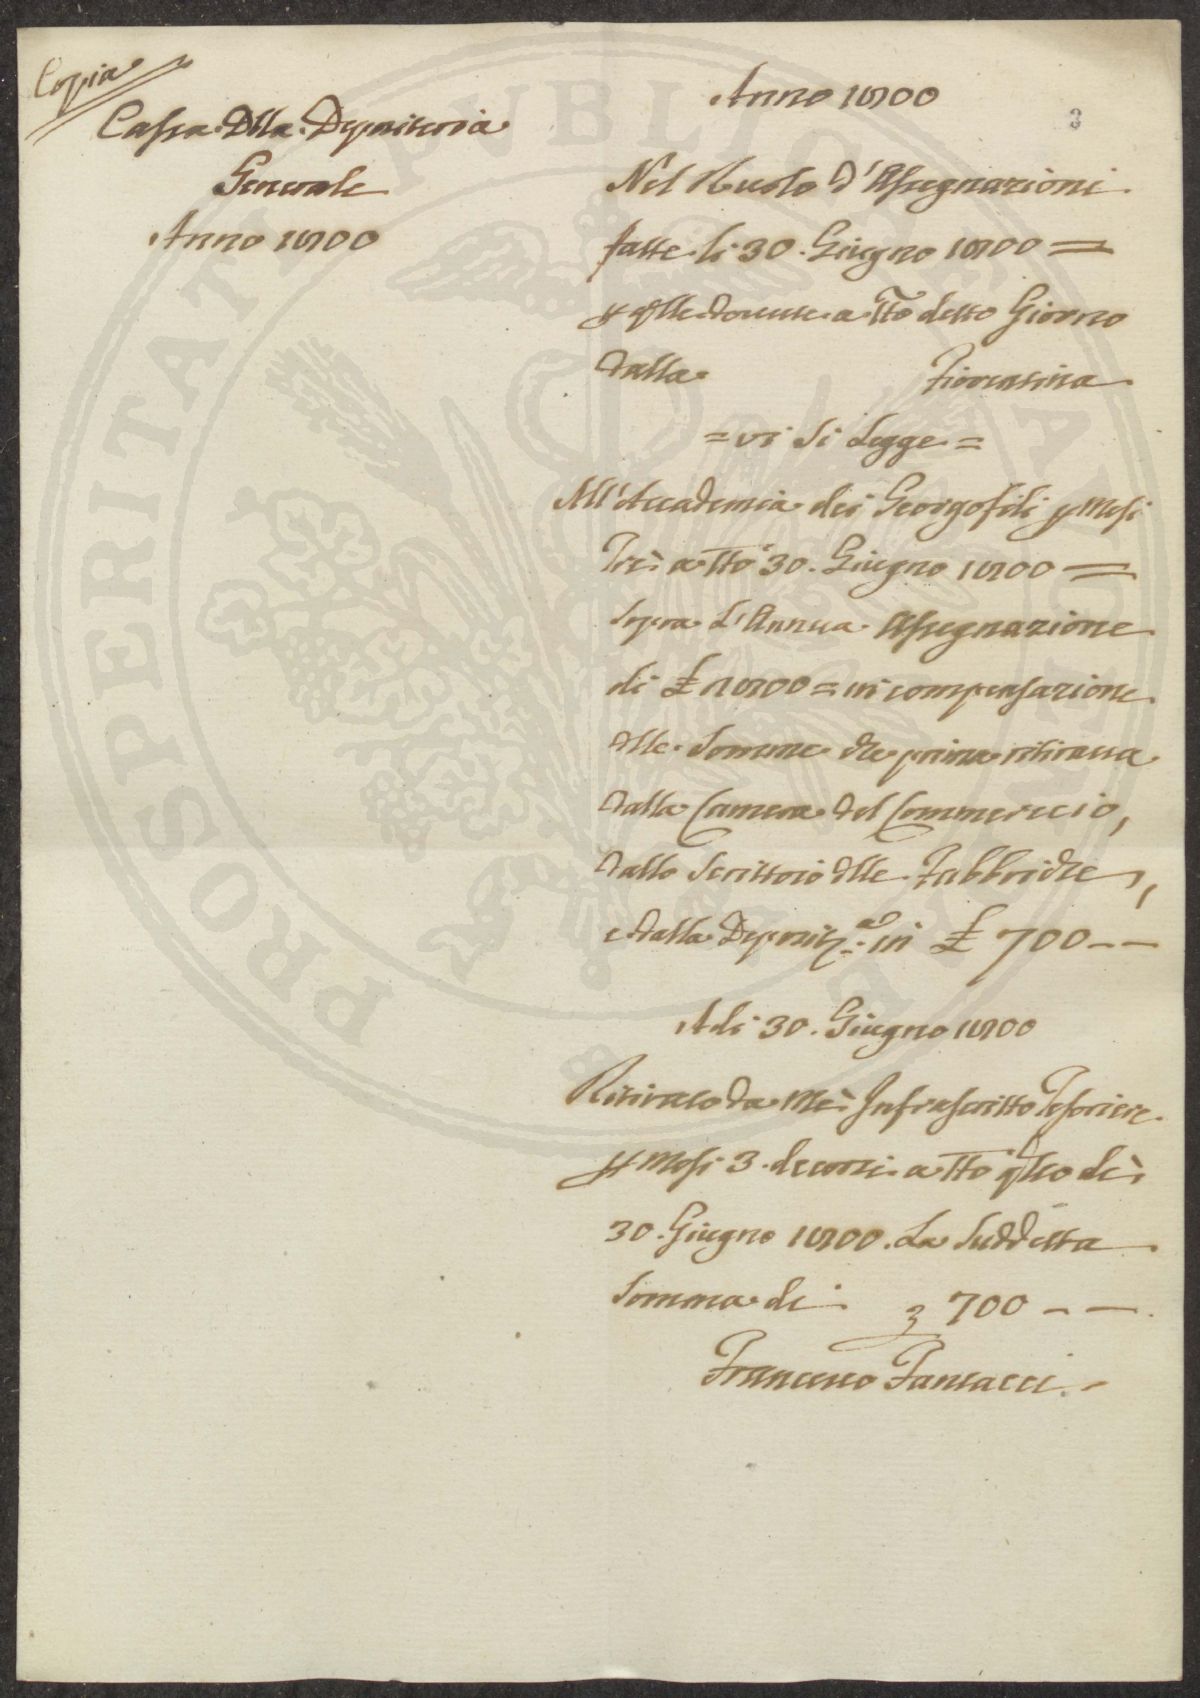 Copia
Cassa Dlla Depositeria
Generale
Anno 1800
Anno 1800
3
Nel Ruolo d'Assegnazioni
fatte li 30. Giugno 1800 =
p qlle dovute a tto detto Giorno
dalla Fiorentina
= vi si Legge =
All'Accademia dei Georgofili p Mesi
Trè a tto 30. Giugno 1800 =
sopra L'Annua Assegnazione
di £ 2800 = in compensazione
dlle somme che prima ritirava
dalla Camera del Commercio,
dallo Scrittoio dlle Fabbriche,
e dalla Deposit.a in £ 700 - -
A di 30. Giugno 1800
Ritirato da Mè Infrascritto Tesoriere
p Mesi 3. decorsi a tto qsto dì
30. Giugno 1800. La Suddetta
Somma di 700 - -
Francesco Pansacci
PROSPERITATI PUBLICAE AUGENDAE